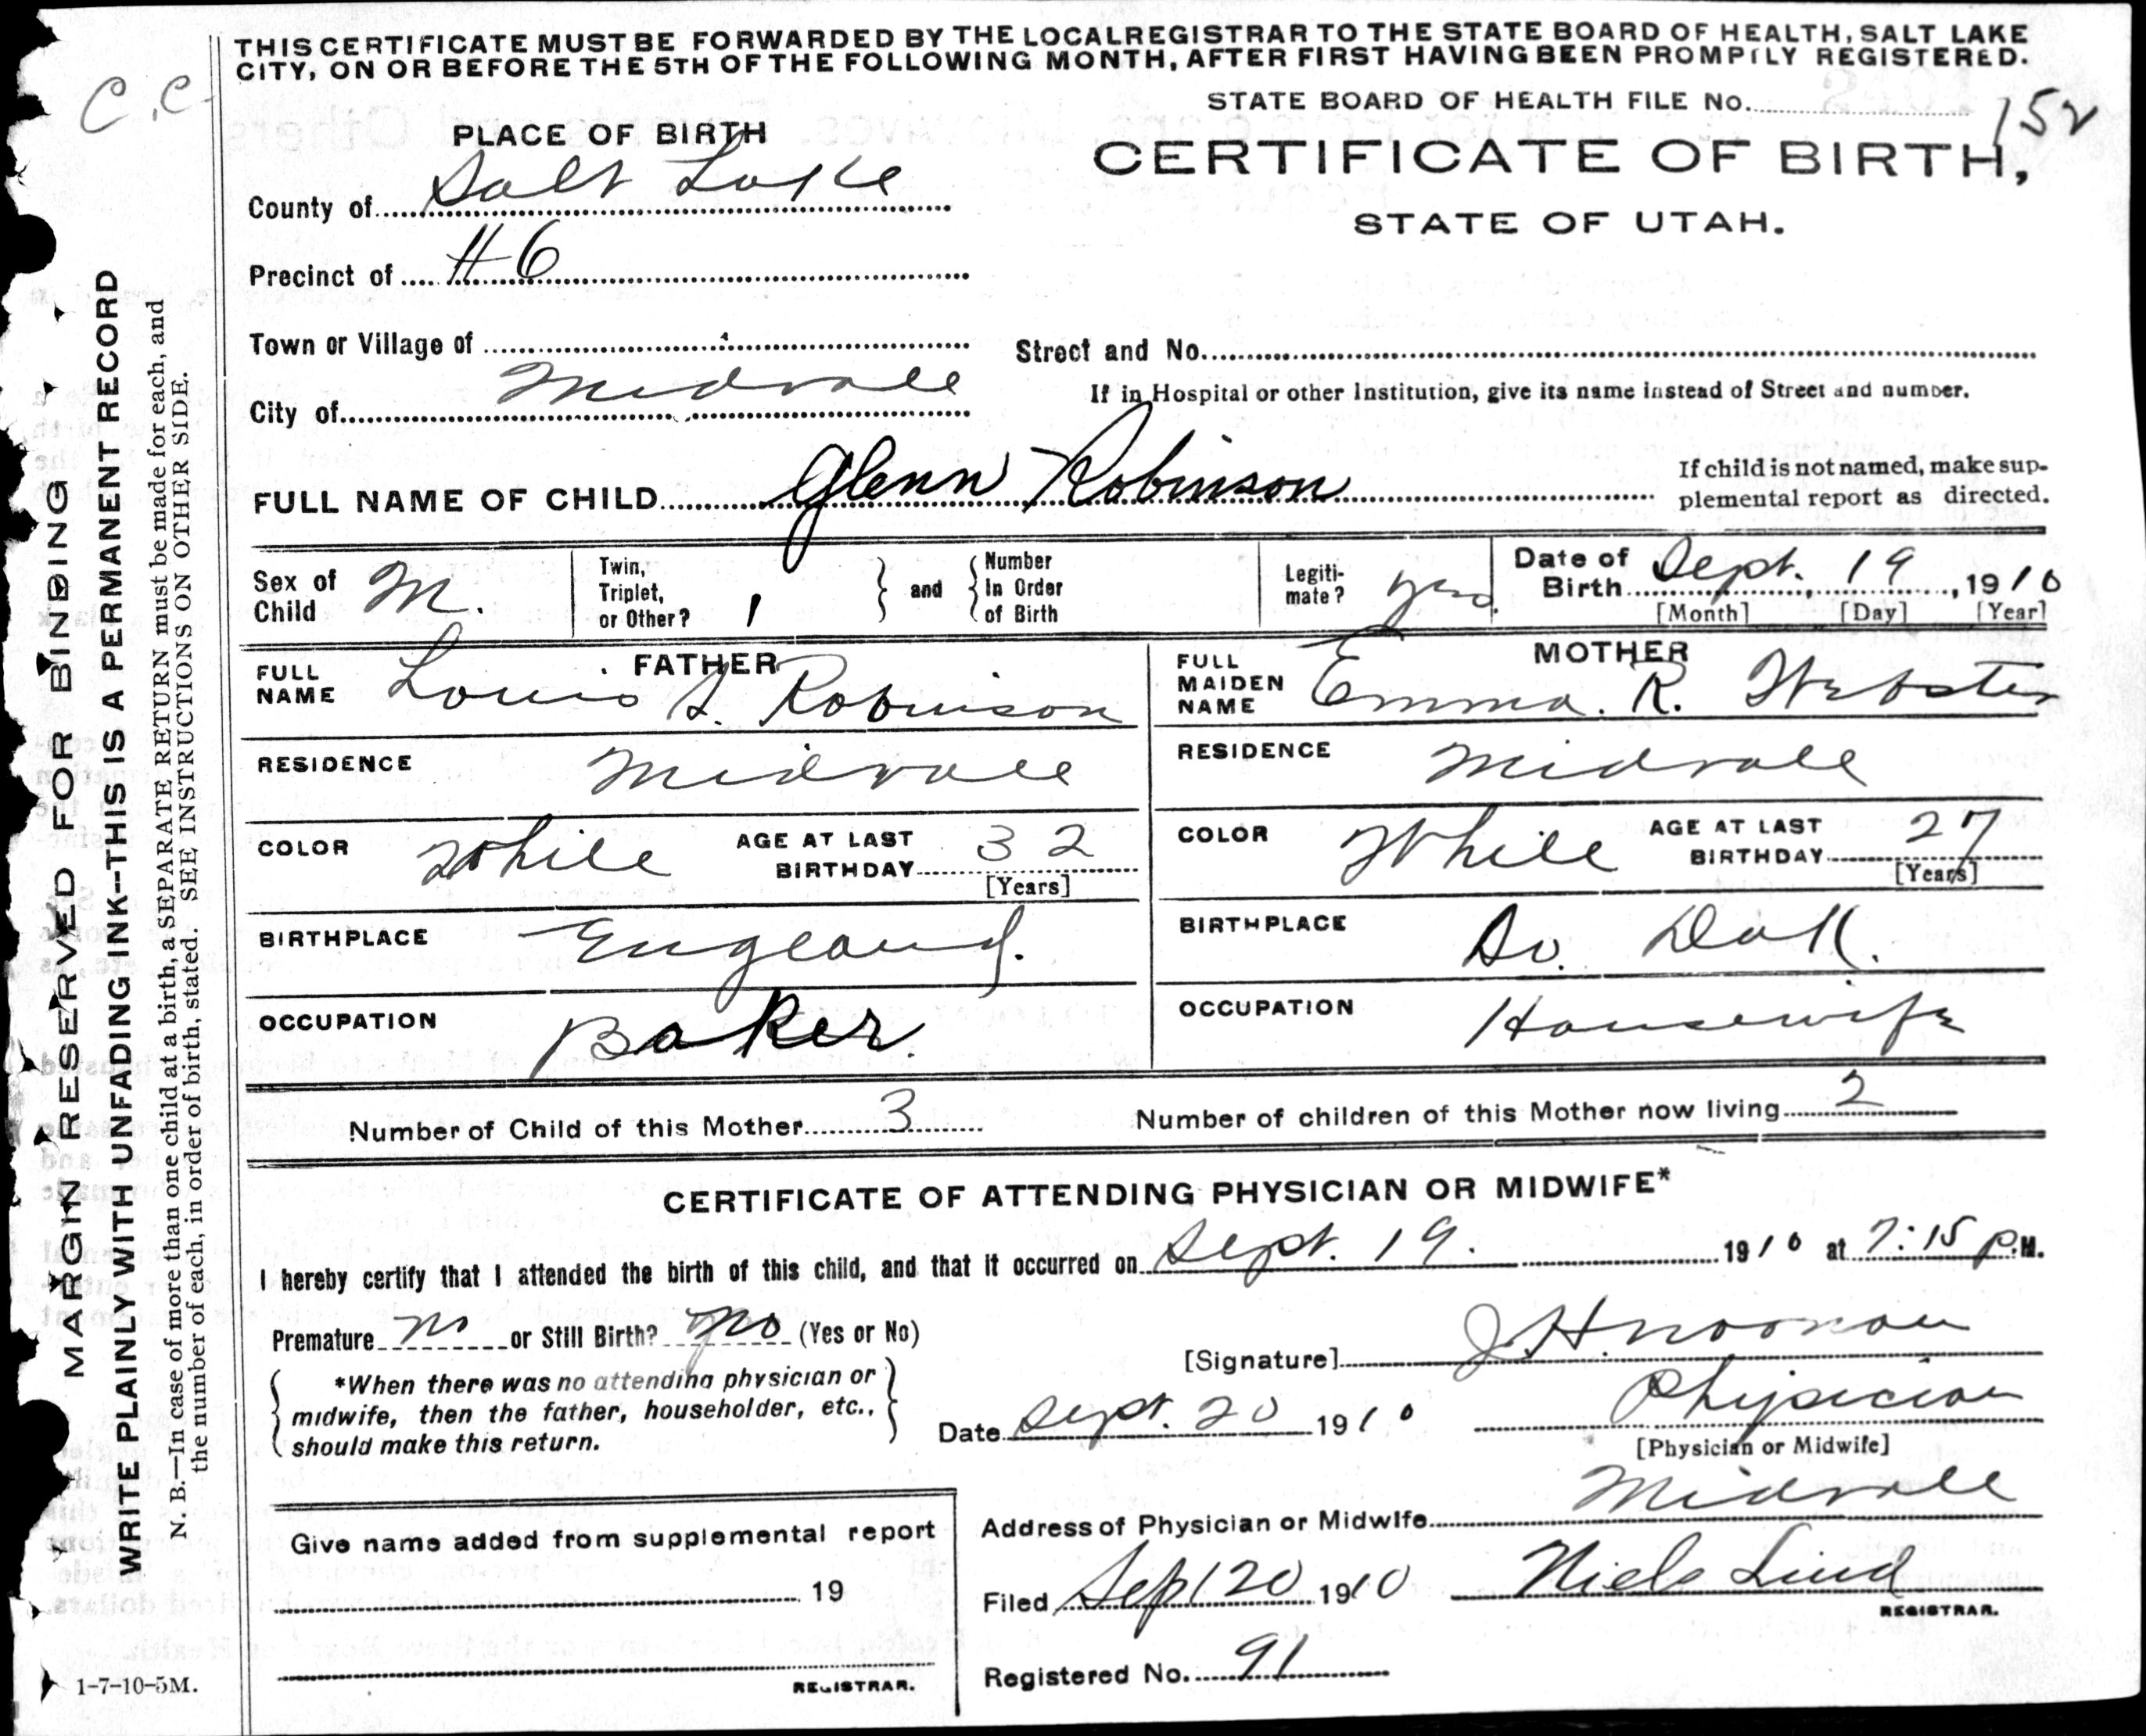 THIS CERTIFICATE MUST BE FORWARDED BY THE LOCAL REGISTRAR TO THE STATE BOARD OF HEALTH, SALT LAKE
CITY, ON OR BEFORE THE 5TH OF THE FOLLOWING MONTH, AFTER FIRST HAVING BEEN PROMPTLY REGISTERED.
C.C.
STATE BOARD OF HEALTH FILE No. 152
PLACE OF BIRTH
CERTIFICATE OF BIRTH,
STATE OF UTAH.
County of Salt Lake
Precinct of #6
Town or Village of
Street and No.
If in Hospital or other Institution, give its name instead of Street and number.
City of Midvale
FULL NAME OF CHILD Glenn Robinson
If child is not named, make sup-
plemental report as directed.
Sex of Child M.
Twin, Triplet, or Other? 1
and
Number In Order of Birth
Legiti-
mate? yes.
Date of Birth Sept. 19, 1910
[Month] [Day] [Year]
FATHER
FULL NAME Louis S. Robinson
RESIDENCE Midvale
COLOR White
AGE AT LAST BIRTHDAY 32
[Years]
BIRTHPLACE England.
OCCUPATION Baker.
MOTHER
FULL MAIDEN NAME Emma. R. Webster
RESIDENCE Midvale
COLOR White
AGE AT LAST BIRTHDAY 27
[Years]
BIRTHPLACE So. Dak.
OCCUPATION Housewife
Number of Child of this Mother 3
Number of children of this Mother now living 2
CERTIFICATE OF ATTENDING PHYSICIAN OR MIDWIFE*
I hereby certify that I attended the birth of this child, and that it occurred on Sept. 19. 1910 at 7:15 P.M.
Premature no or Still Birth? no (Yes or No)
[Signature] J. H. Noonan
*When there was no attending physician or
midwife, then the father, householder, etc.,
should make this return.
Date Sept. 20 1910
Physician
[Physician or Midwife]
Address of Physician or Midwife Midvale
Give name added from supplemental report
19
REGISTRAR.
Filed Sept 20 1910
Niels Lind
REGISTRAR.
Registered No. 91
1-7-10-5M.
MARGIN RESERVED FOR BINDING
WRITE PLAINLY WITH UNFADING INK--THIS IS A PERMANENT RECORD
N. B.—In case of more than one child at a birth, a SEPARATE RETURN must be made for each, and
the number of each, in order of birth, stated. SEE INSTRUCTIONS ON OTHER SIDE.